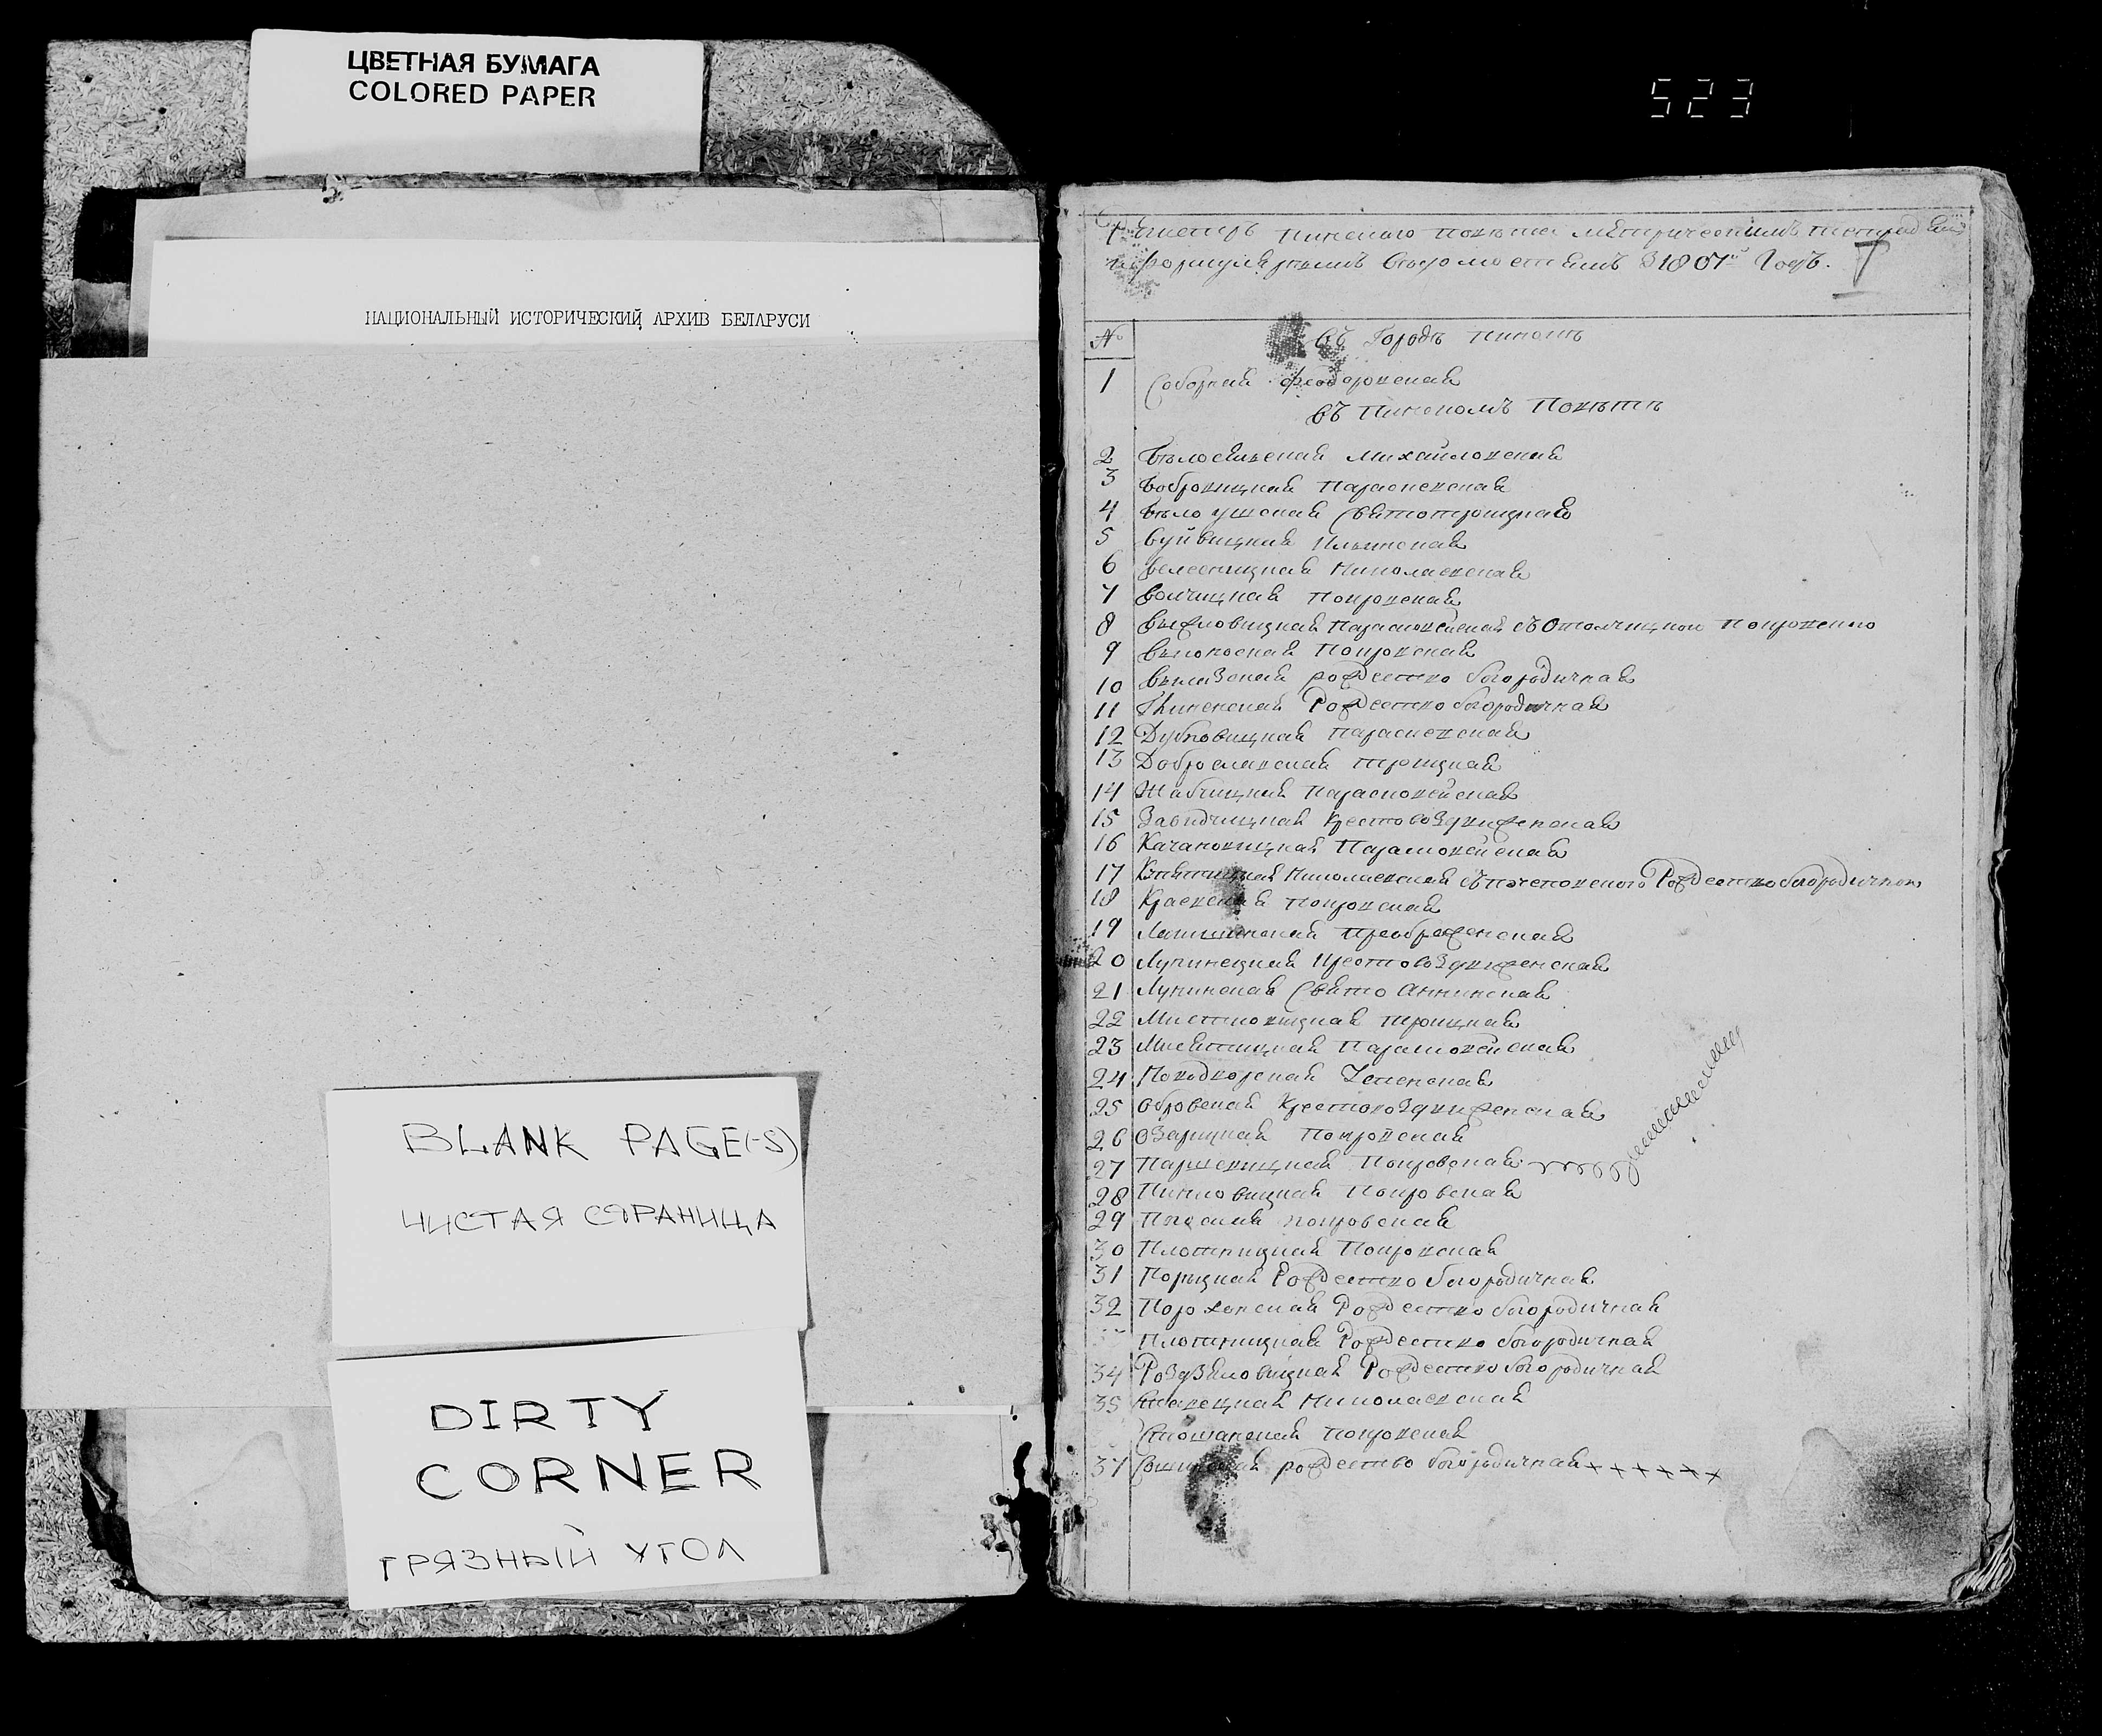 ЦВЕТНАЯ БУМАГА
COLORED PAPER
523
НАЦИОНАЛЬНЫЙ ИСТОРИЧЕСКИЙ АРХИВ БЕЛАРУСИ
BLANK PAGE(-S)
ЧИСТАЯ СТРАНИЦА
DIRTY
CORNER
ГРЯЗНЫЙ УГОЛ
Реестръ Пинскаго Повѣта метрическимъ тетрадямъ
и Формулярнымъ Вѣдомостямъ 1807 Годъ.
№ въ Городѣ Пинскѣ
1 Соборная Феодоровская
въ Пинскомъ Повѣтѣ
2 Бѣлосельская Михайловская
3 Бобровицкая Параскевская
4 Бѣлоушская Святотроицкая
5 Вуйвицкая Ильинская
6 Велесницкая Николаевская
7 Волчицкая Покровская
8 Параскевейская съ Покровскою
9 Покровская
10 Вылазская рождество богородичная
11 Рождество богородичная
12 Дубновицкая Параскевская
13 Доброславская троицкая
14 Жабчицкая Параскевейская
15 Завидчицкая Крестовоздвиженская
16 Качановицкая Парашкевейская
17 Николаевская Рождество богородичною
18 Краевская Покровская
19 Преображенская
20 Лунинецкая Крестовоздвиженская
21 Лунинская Свято Аннинская
22 Мистковицкая троицкая
23 Мисятицкая Парашкевейская
24 Новодворская Успенская
25 Обровская Крестовоздвиженская
26 Озарицкая Покровская
27 Паршевицкая Покровская
28 Пинковицкая Покровская
29 Покровская
30 Плотницкая Покровская
31 Порицкая Рождество богородичная
32 Порохонская Рождество богородичная
Плотницкая Рождество богородичная
34 Раздяловицкая Рождество богородичная
35 Николаевская
Стошанская Покровская
37 рождество богородичная